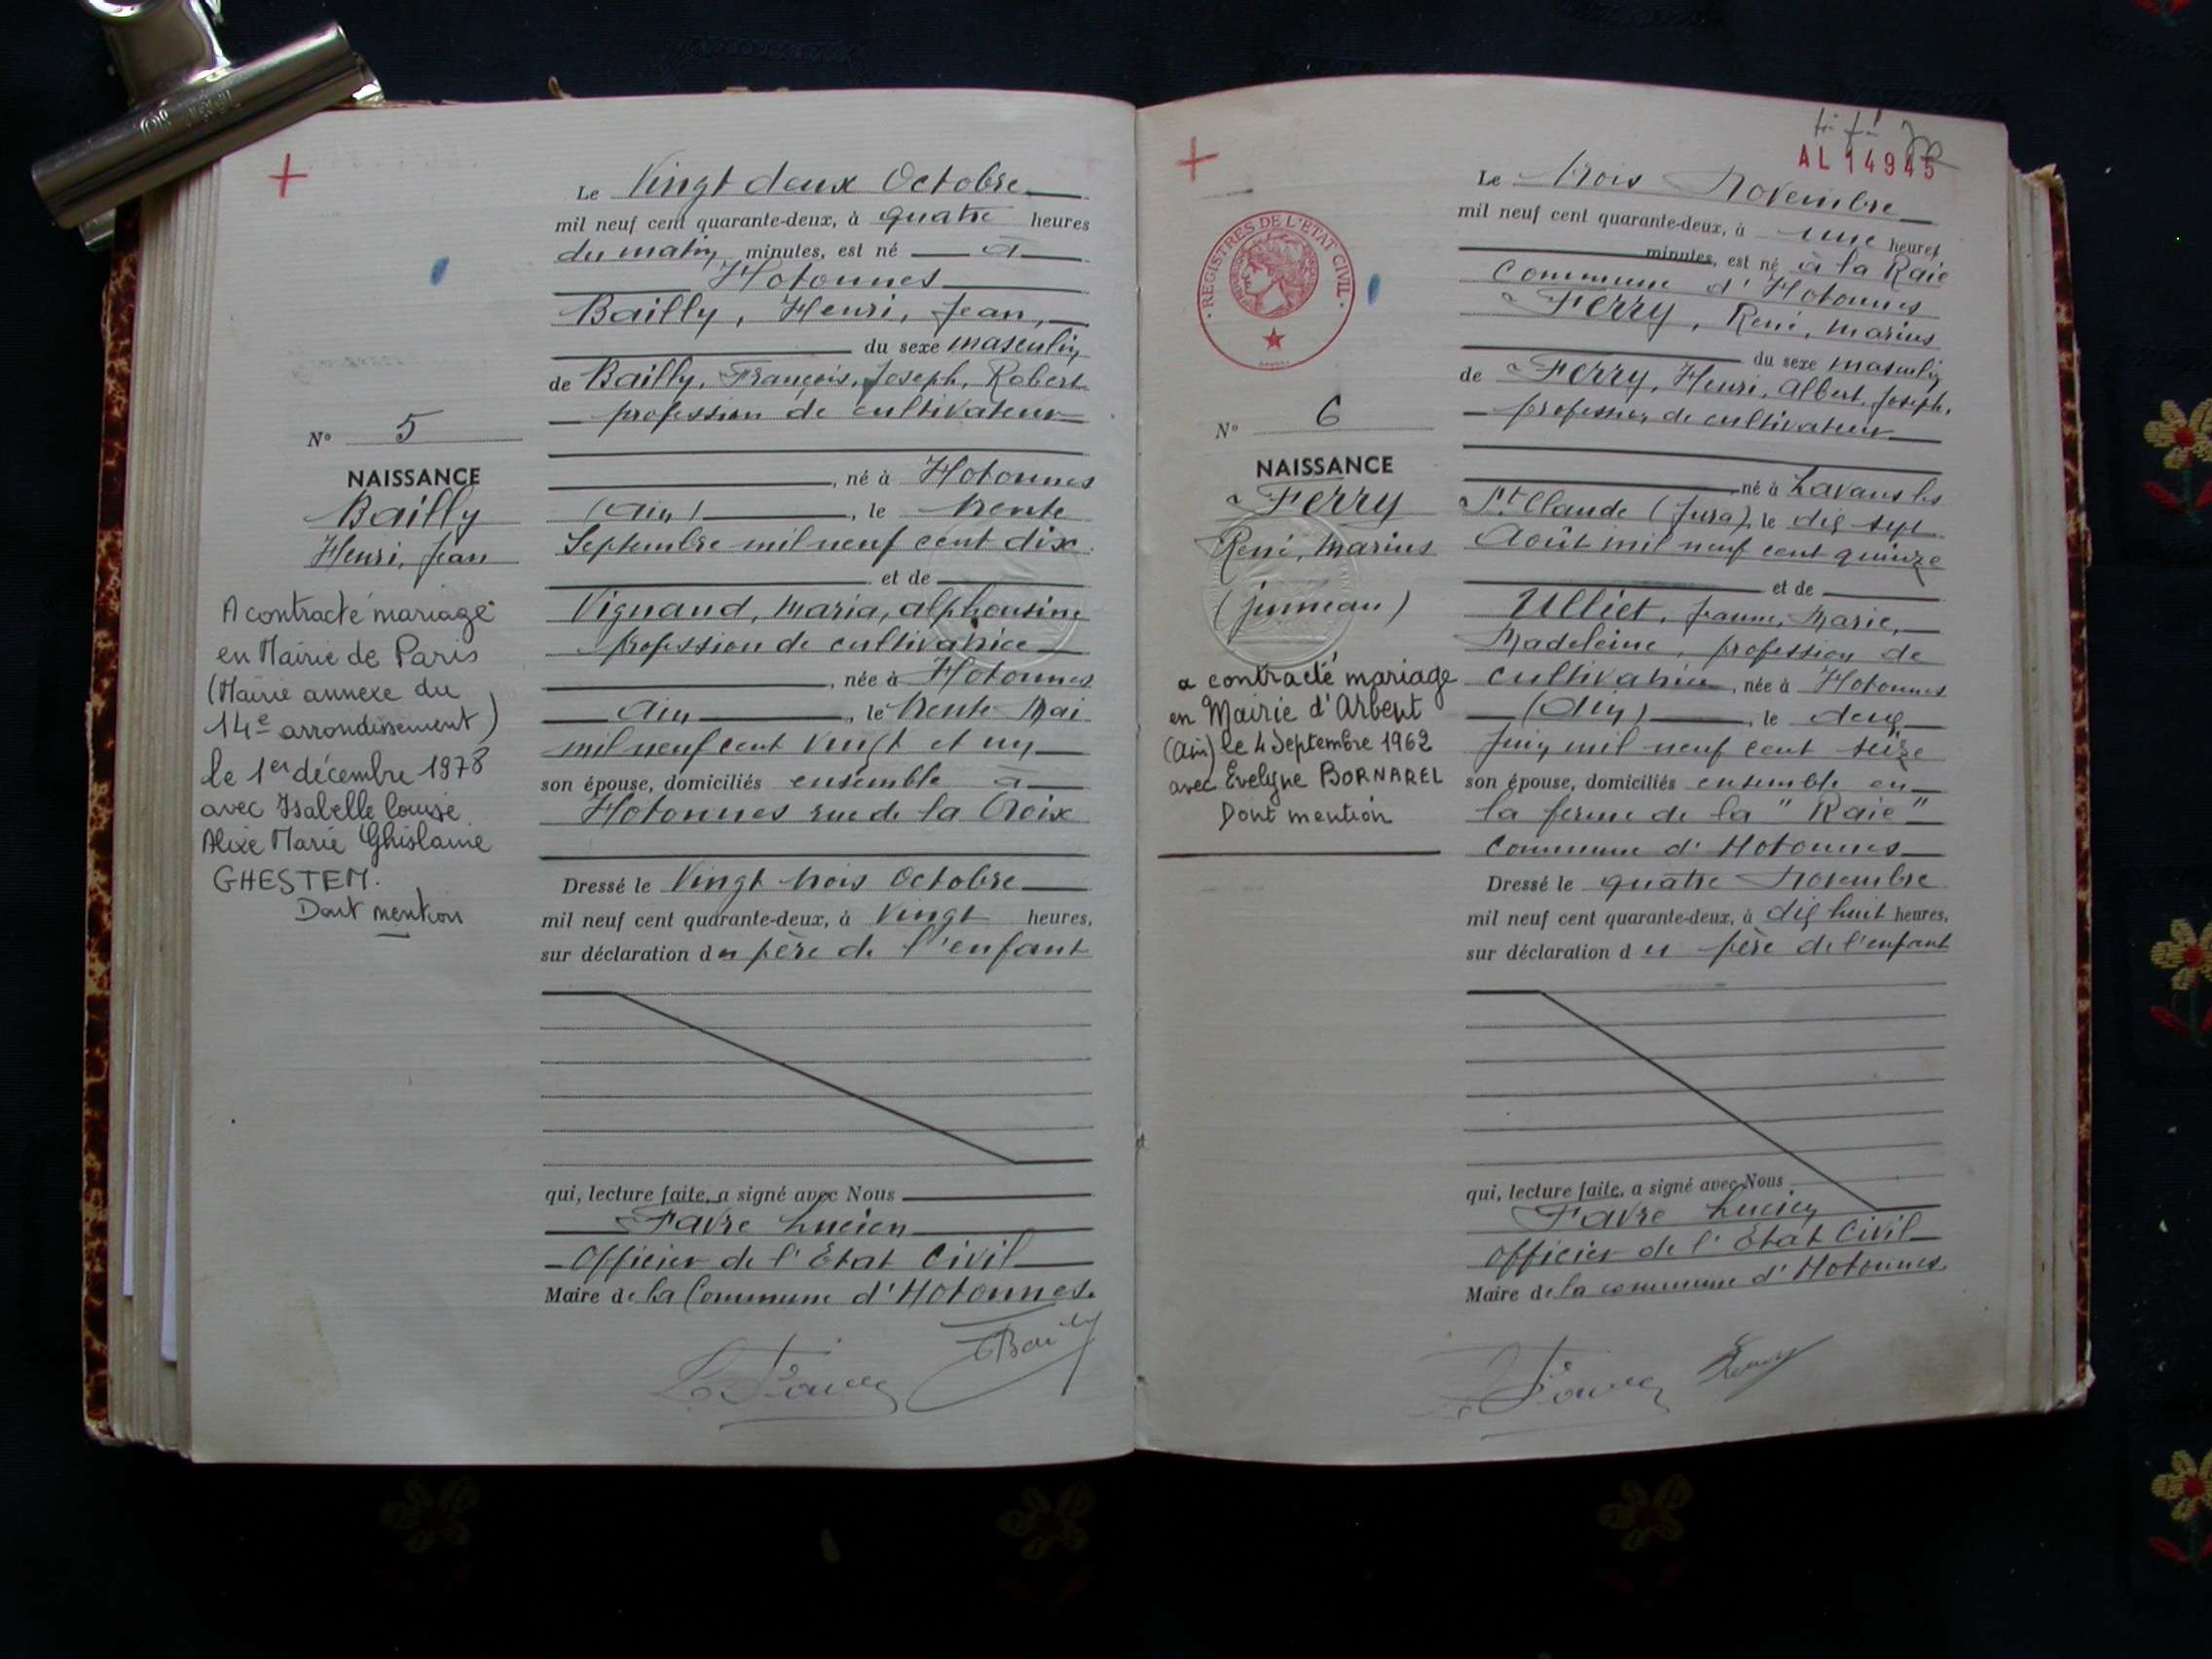 Le Vingt deux Octobre
mil neuf cent quarante-deux, à quatre heures
du matin minutes, est né à
Hotonnes
Bailly, Henri, Jean,
du sexe masculin
de Bailly, François, Joseph, Robert
profession de cultivateur
N° 5
NAISSANCE
Bailly
Henri, Jean
A contracté mariage
en Mairie de Paris
(Mairie annexe du
14e arrondissement)
le 1er décembre 1978
avec Isabelle Louise
Alixe Marie Ghislaine
GHESTEM.
Dont mention
, né à Hotonnes
(Ain), le trente
Septembre mil neuf cent dix
et de
Vignand, Maria, Alphonsine
profession de cultivatrice
, née à Hotonnes
Ain, le trente Mai
mil neuf cent vingt et un
son épouse, domiciliés ensemble à
Hotonnes rue de la Croix
Dressé le Vingt trois Octobre
mil neuf cent quarante-deux, à Vingt heures,
sur déclaration du père de l'enfant
qui, lecture faite, a signé avec Nous
Favre Lucien
Officier de l'Etat Civil
Maire de la Commune d'Hotonnes.
L. Favre
Bailly
AL 14945
Le trois Novembre
mil neuf cent quarante-deux, à une heures
minutes, est né à la Raie
Commune d'Hotonnes
Ferry, René, Marius
du sexe masculin
de Ferry, Henri, Albert, Joseph,
profession de cultivateur
REGISTRES DE L'ETAT CIVIL
N° 6
NAISSANCE
Ferry
René, Marius
(jumeau)
a contracté mariage
en Mairie d'Arbent
(Ain) le 4 Septembre 1962
avec Evelyne BORNAREL
Dont mention
né à Lavans les
St Claude (Jura), le dix sept
Août mil neuf cent quinze
et de
Ulliet, Jeanne, Marie,
Madeleine, profession de
cultivatrice, née à Hotonnes
(Ain), le deux
Juin mil neuf cent seize
son épouse, domiciliés ensemble en
la ferme de la "Raie"
Commune d'Hotonnes
Dressé le quatre Novembre
mil neuf cent quarante-deux, à dix huit heures,
sur déclaration du père de l'enfant
qui, lecture faite, a signé avec Nous
Favre Lucien
Officier de l'Etat Civil
Maire de la commune d'Hotonnes
L. Favre
Ferry